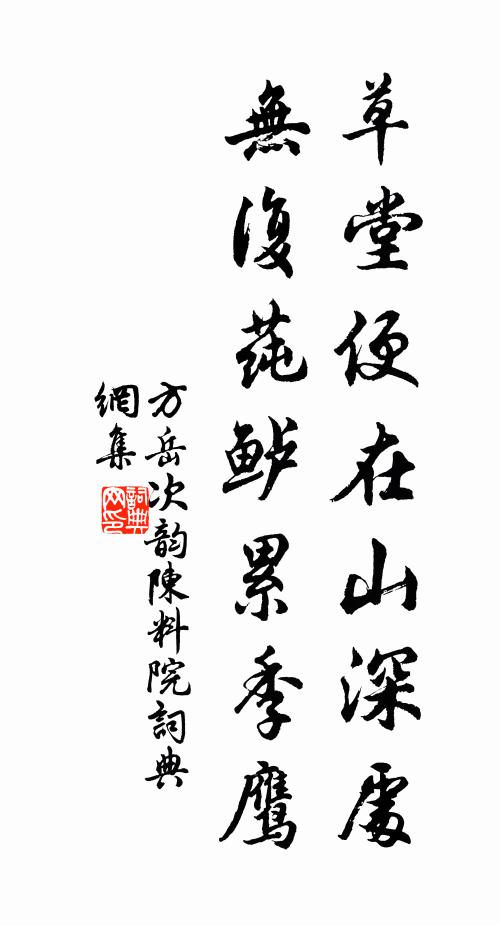 草堂便在山深處
無復莼鲈累季鹰
方岳次韵陳料院詞典
網集
詞典网印